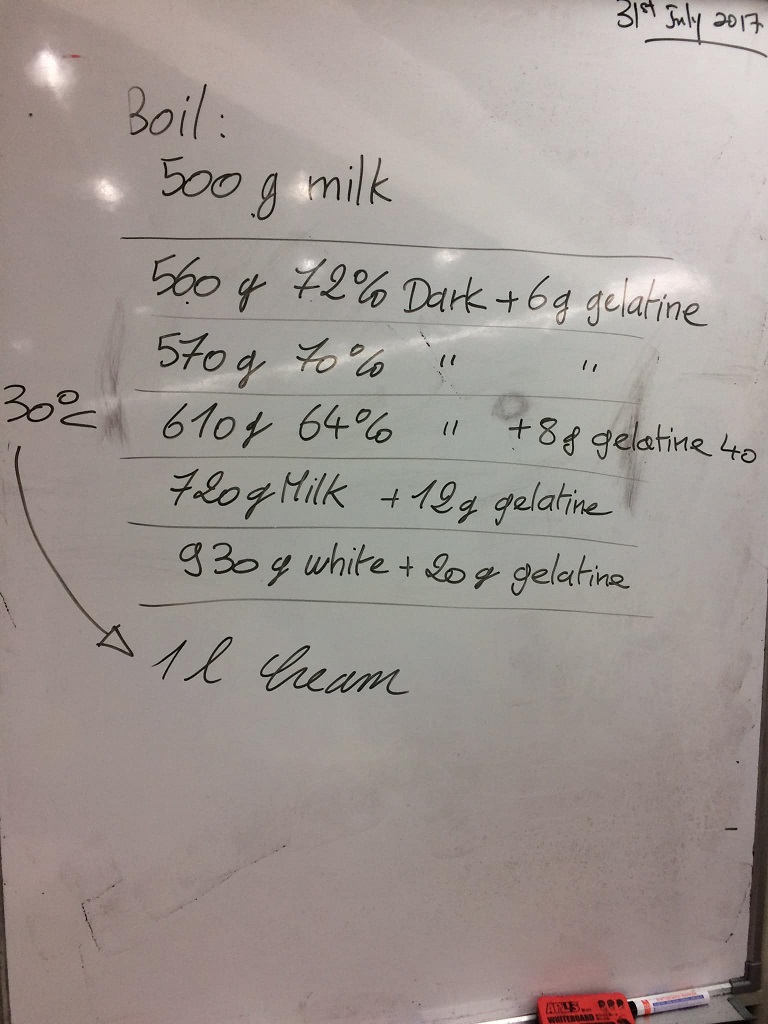 31st July 2017
Boil:
500 g milk
560 g 72% Dark + 6g gelatine
570 g 70% " "
30°C
610 g 64% " + 8 g gelatine 40
720 g Milk + 12g gelatine
930 g white + 20 g gelatine
1 l Cream
WHITEBOARD